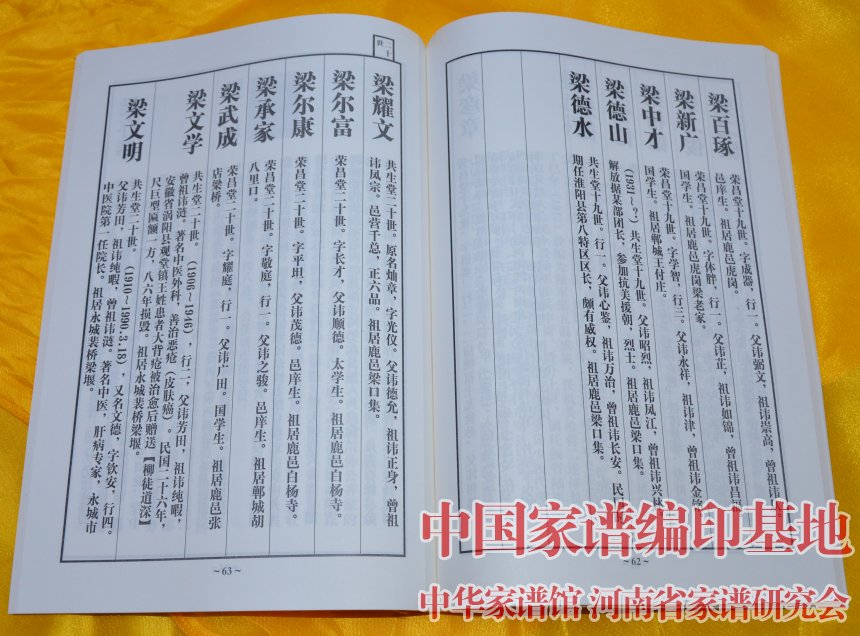 梁百琢
荣昌堂十九世。字成器，行一。父讳弼文，祖讳崇高，曾祖讳
邑庠生。祖居鹿邑虎岗。
梁新广
荣昌堂十九世。字体胖，行一。父讳芷，祖讳如锦，曾祖讳昌
国学生。祖居鹿邑虎岗梁老家。
梁中才
荣昌堂十九世。字学智，行三。父讳永祥，祖讳津，曾祖讳金
国学生。祖居郸城王付庄。
梁德山
(1931～?) 共生堂十九世。父讳昭烈，祖讳凤江，曾祖讳兴
解放据某部团长，参加抗美援朝，烈士。祖居鹿邑梁口集。
梁德水
共生堂十九世。行一。父讳心鉴，祖讳万治，曾祖讳长安。民
期任淮阳县第八特区区长，颇有威权。祖居鹿邑梁口集。
～62～
二十世
梁耀文
共生堂二十世。原名灿章，字光仪。父讳德允，祖讳正身，曾祖
讳凤宗。邑营千总，正六品。祖居鹿邑梁口集。
梁尔富
荣昌堂二十世。字长才，父讳顺德。太学生。祖居鹿邑白杨寺。
梁尔康
荣昌堂二十世。字平坦，父讳茂德。邑庠生。祖居鹿邑白杨寺。
梁承家
荣昌堂二十世。字敬庭，行一。父讳之骏。邑庠生。祖居郸城胡
八里口。
梁武成
荣昌堂二十世。字耀庭，行一。父讳广田。国学生。祖居鹿邑张
店梁桥。
梁文学
共生堂二十世。(1906～1946)，行二，父讳芳田，祖讳纯暇，
曾祖讳涟。著名中医外科，善治恶疮（皮肤癌）。民国二十六年，
安徽省涡阳县观堂镇王姓患者大背疮被治愈后赠送【柳徒道深】
尺巨型匾额一方，八六年损毁。祖居永城裴桥梁堰。
梁文明
共生堂二十世。(1910～1990.3.18)，又名文德，字钦安，行四。
父讳芳田，祖讳纯暇，曾祖讳涟。著名中医，肝病专家，永城市
中医院第一任院长。祖居永城裴桥梁堰。
～63～
中国家谱编印基地
中华家谱馆 河南省家谱研究会